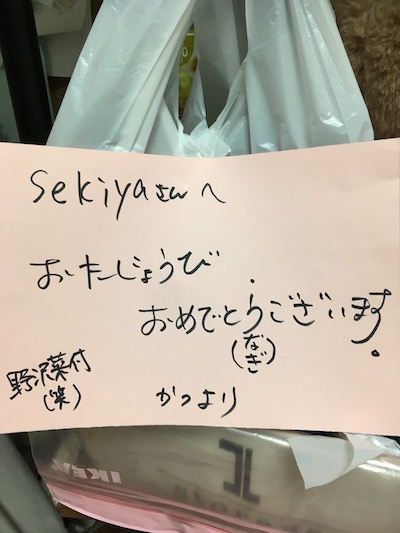 sekiyaさんへ
おたじょうび
おめでとうございます。
(なぎ)
野沢菜付
(笑)
かつより
IKEA